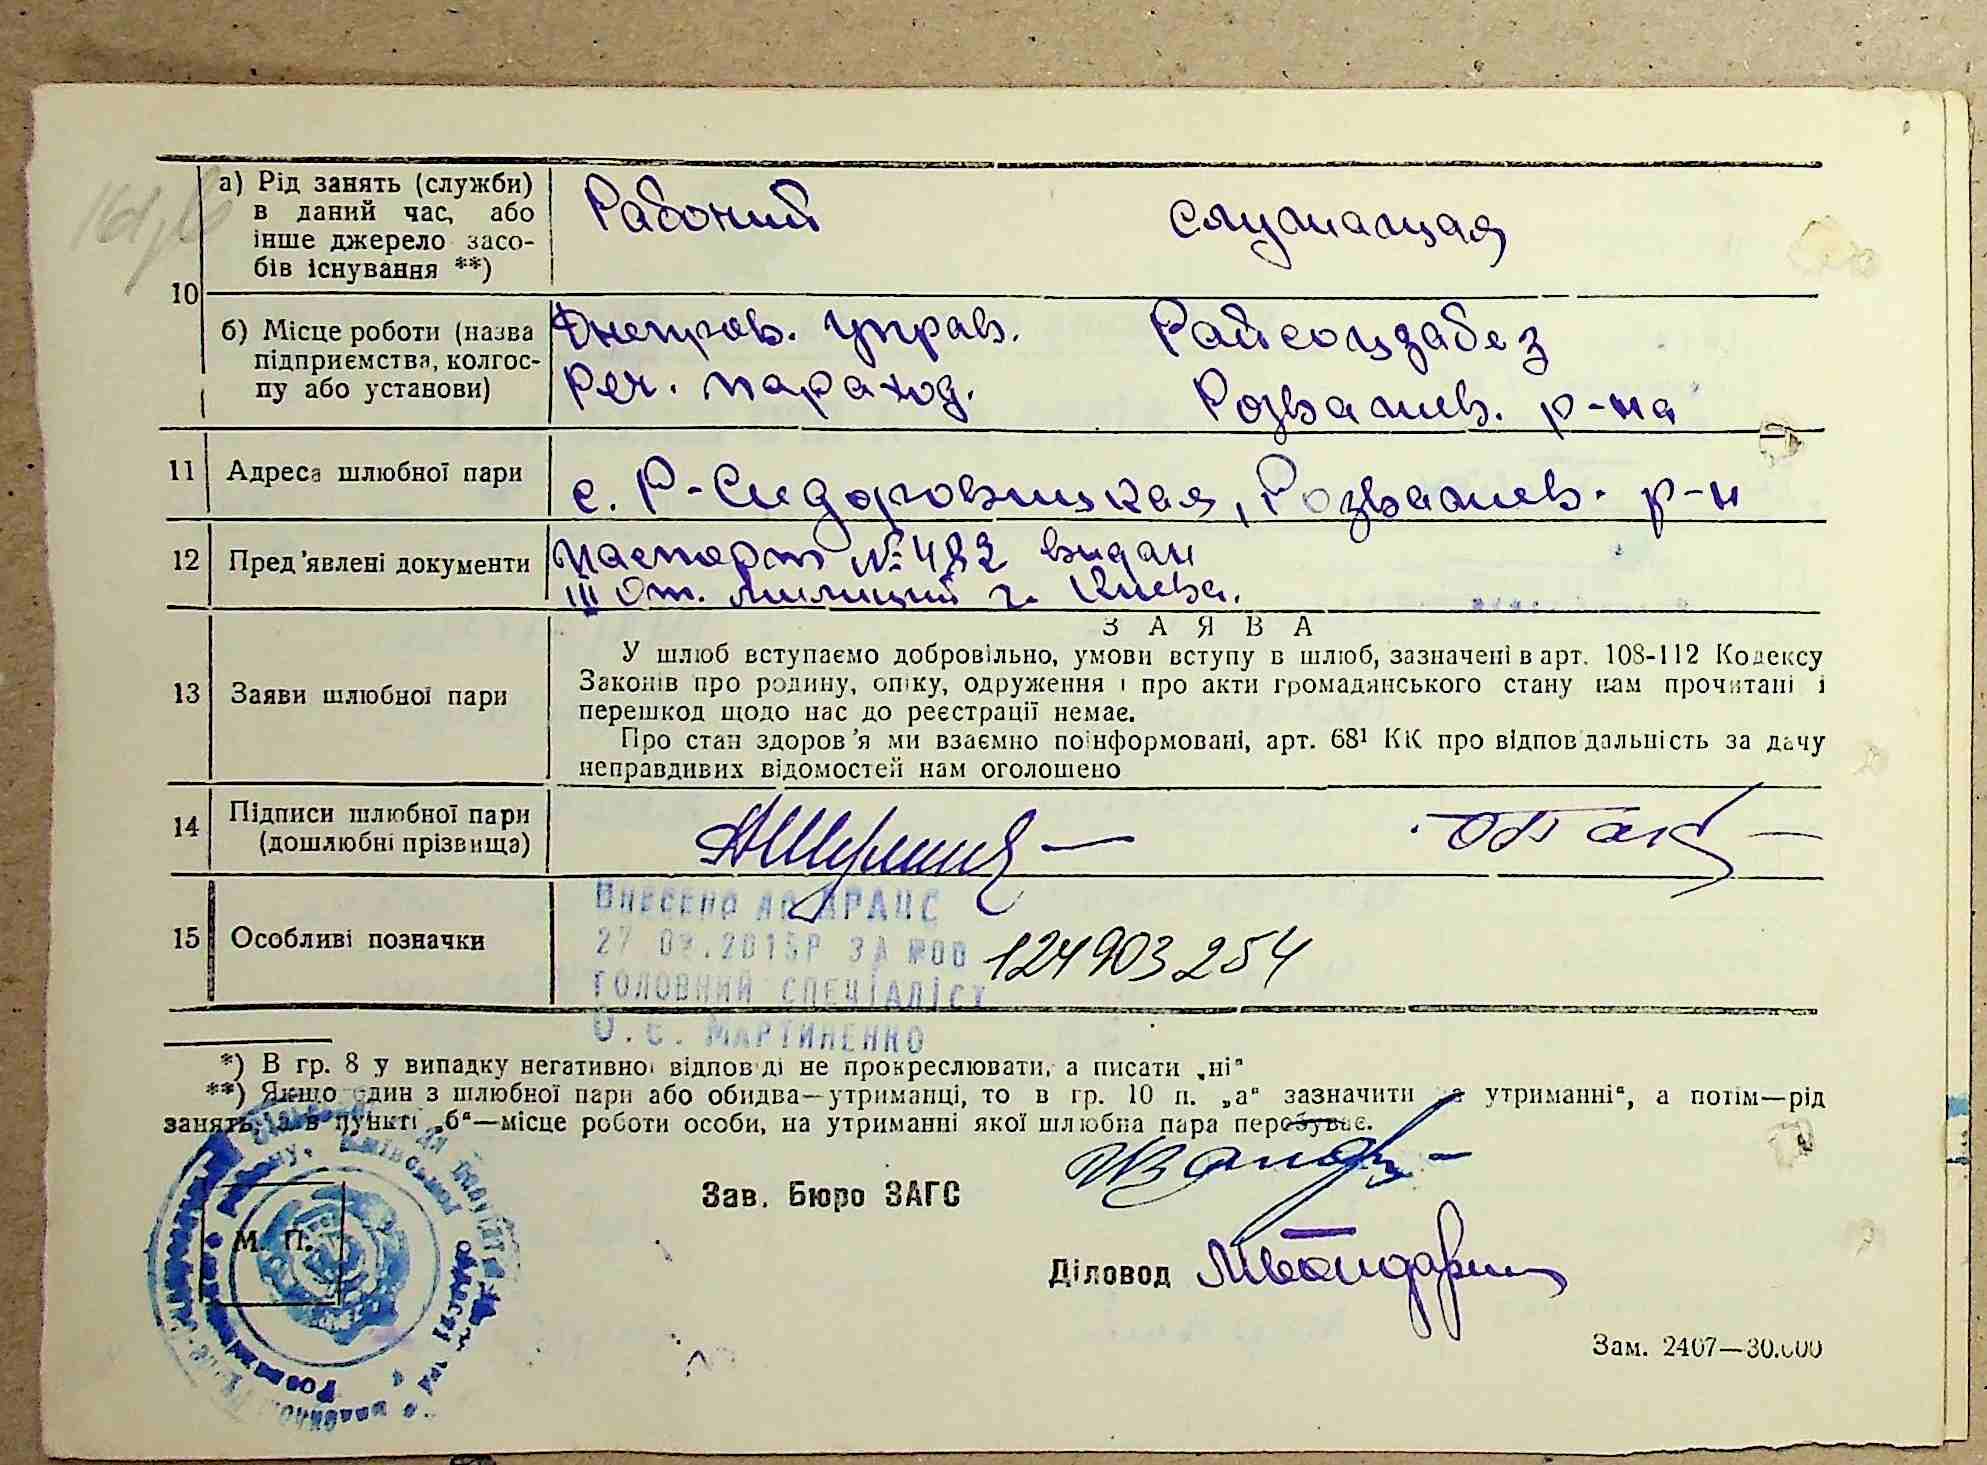 10
а) Рід занять (служби)
в даний час, або
інше джерело засо-
бів існування **)
Рабочий
служащая
б) Місце роботи (назва
підприємства, колгос-
пу або установи)
Днепров. управ.
Реч. параход.
Райсоцзабез
Розважев. р-на
11 Адреса шлюбної пари
с. Р-Сидоровицкая, Розважев. р-н
12 Пред'явлені документи
паспорт № 482 видан
III От. милиции г. Киева.
13 Заяви шлюбної пари
ЗАЯВА
У шлюб вступаємо добровільно, умови вступу в шлюб, зазначені в арт. 108-112 Кодексу
Законів про родину, опіку, одруження і про акти громадянського стану нам прочитані і
перешкод щодо нас до реєстрації немає.
Про стан здоров'я ми взаємно поінформовані, арт. 68¹ КК про відповідальність за дачу
неправдивих відомостей нам оголошено
14 Підписи шлюбної пари
(дошлюбні прізвища)
15 Особливі позначки
Внесено до ДРАЦС
27.08.2015р за №00 124903254
головний спеціаліст
О.Є. Мартиненко
*) В гр. 8 у випадку негативної відповіді не прокреслювати, а писати „ні“
**) Якщо один з шлюбної пари або обидва—утриманці, то в гр. 10 п. „а“ зазначити на утриманні“, а потім—рід
занять, а в пункті „б“—місце роботи особи, на утриманні якої шлюбна пара перебуває.
Зав. Бюро ЗАГС
М. П.
Діловод
Зам. 2407—30.000